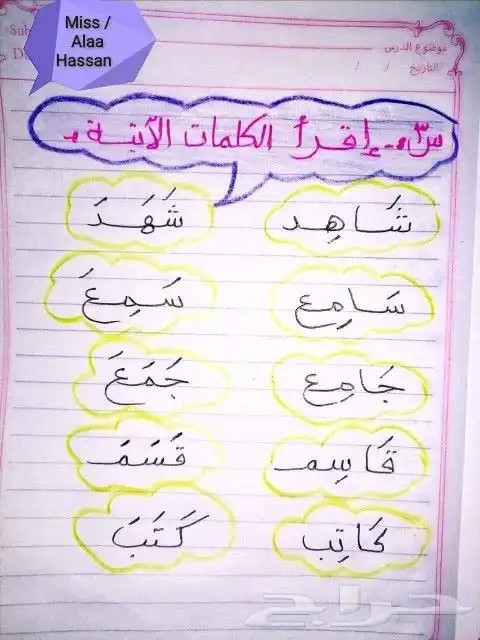 Miss /
Alaa
Hassan
موضوع الدرس
التاريخ / /
س٣ - إقرأ الكلمات الآتية .
شَاهِد شَهَدَ
سَامِع سَمِعَ
جَامِع جَمَعَ
قَاسِم قَسَمَ
كَاتِب كَتَبَ
حراج